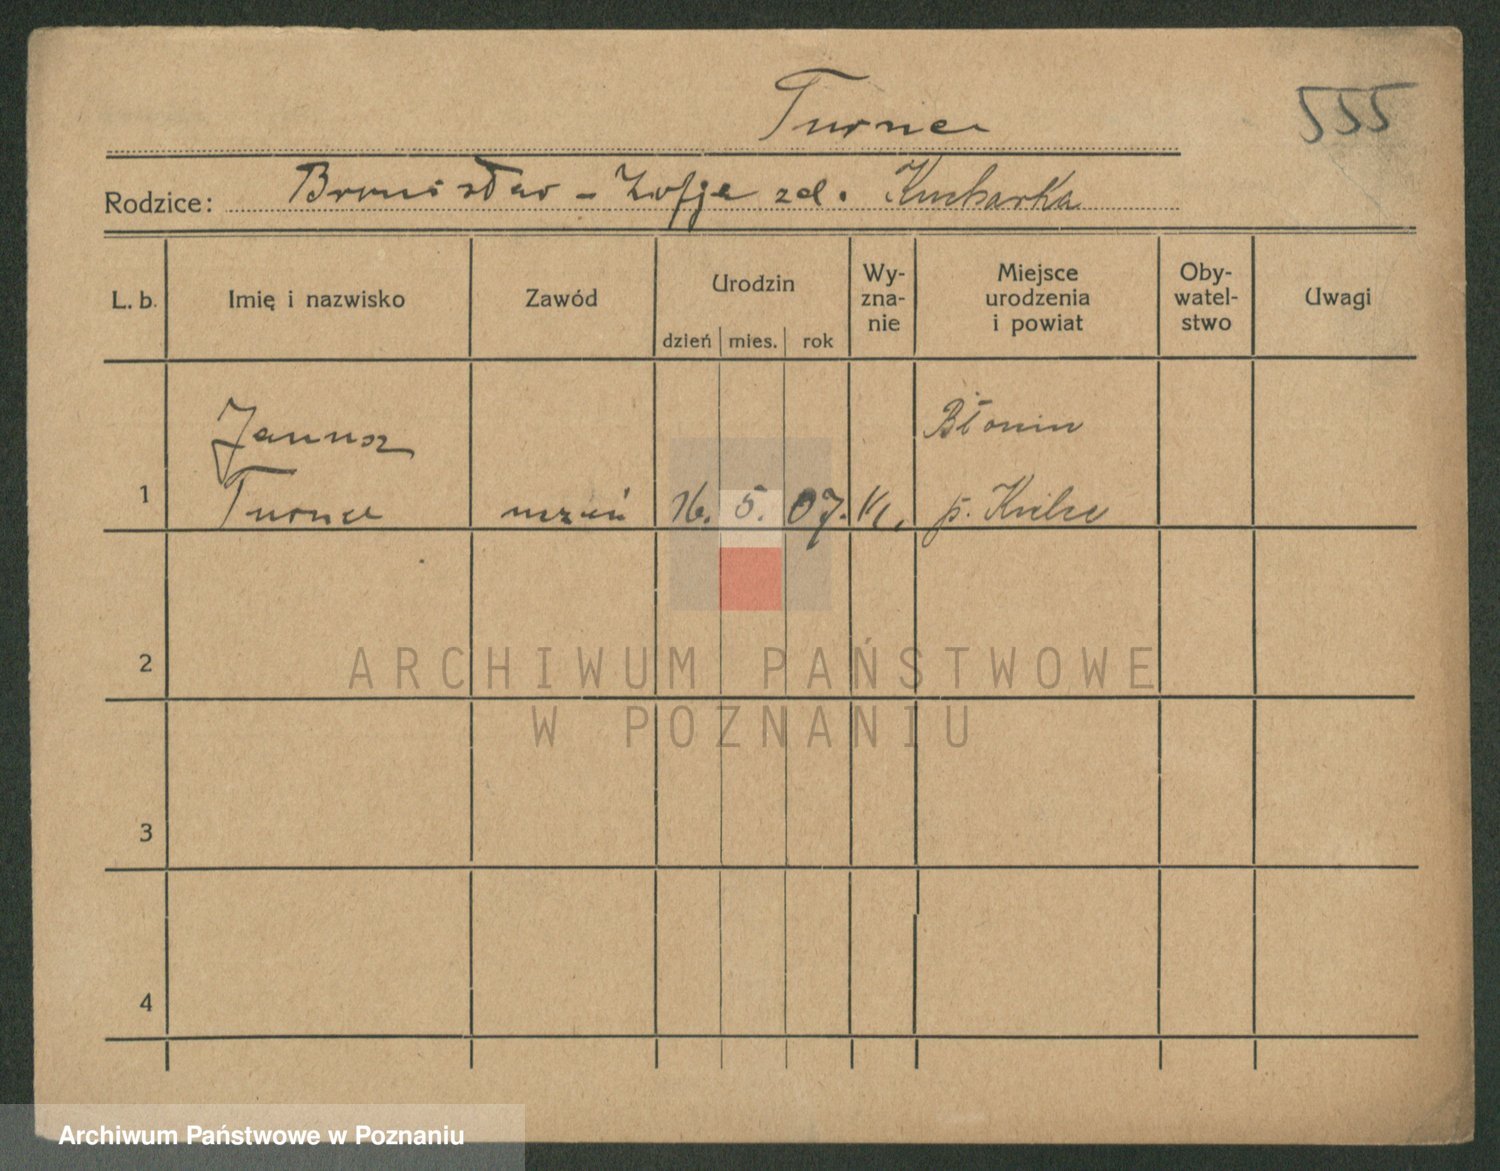 Turner
555
Rodzice: Bronisław - Zofja zd. Kucharka
L. b. Imię i nazwisko Zawód Urodzin dzień mies. rok Wy-zna-nie Miejsce urodzenia i powiat Oby-watel-stwo Uwagi
Janusz
Błonin
1 Turner uczeń 16. 5. 07. p.
2
ARCHIWUM PAŃSTWOWE
W POZNANIU
3
4
Archiwum Państwowe w Poznaniu